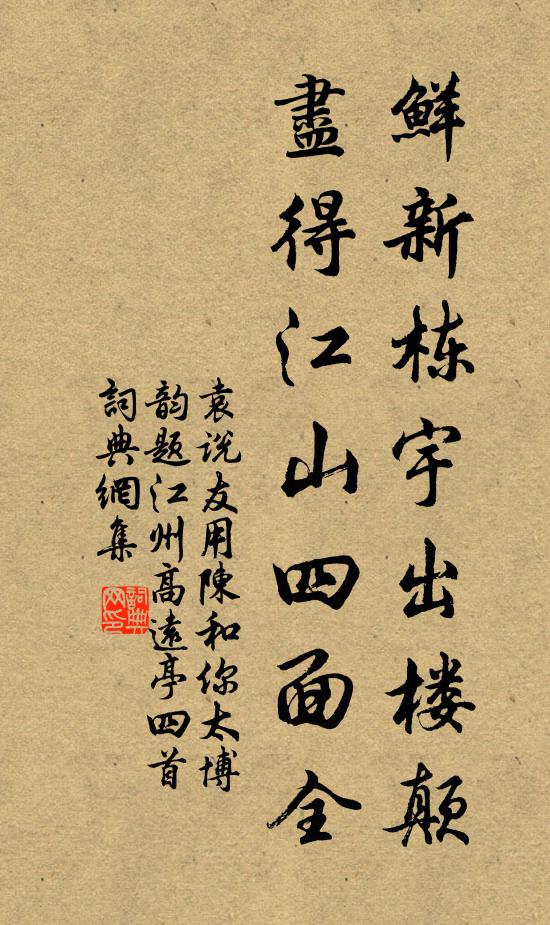 鮮新栋宇出楼颠
盡得江山四面全
袁说友用陳和你太博
韵题江州高遠亭四首
詞典網集
詞典网印